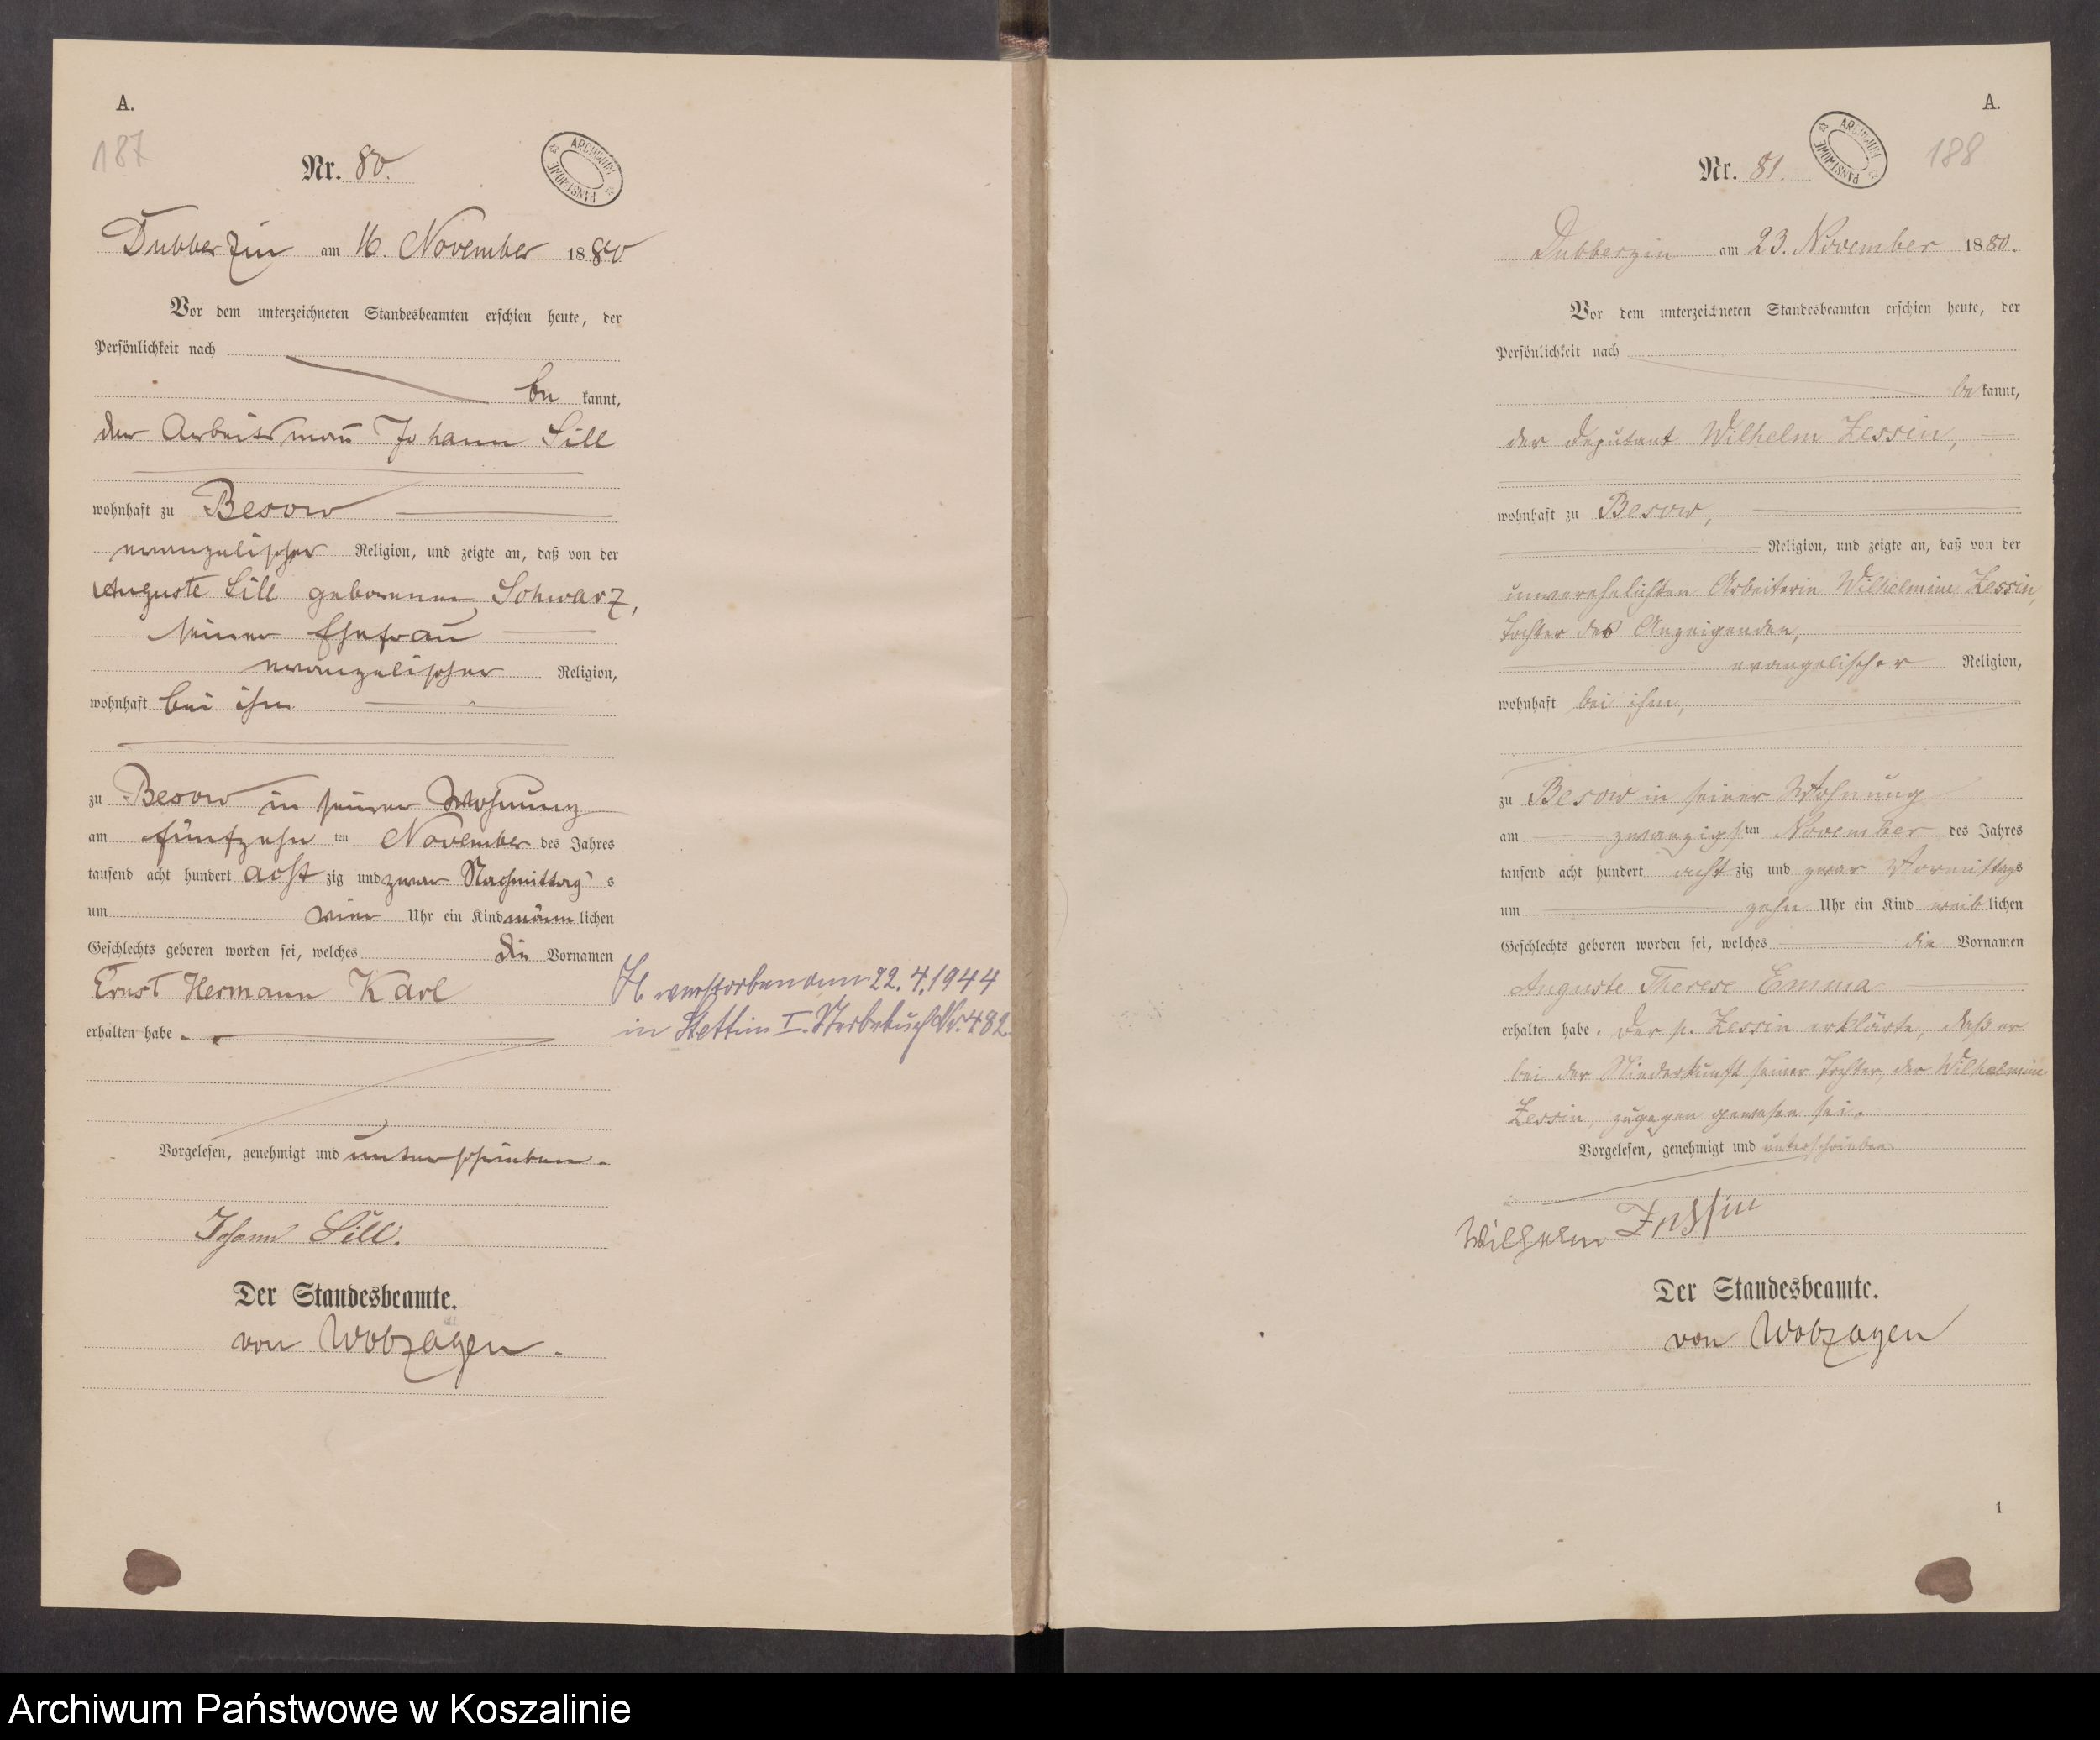 A.
187
Nr. 80.
ARCHIWUM PAŃSTWOWE
Dubberzin am 16. November 1880
Vor dem unterzeichneten Standesbeamten erschien heute, der
Persönlichkeit nach
be kannt,
der Arbeitsmann Johann Sill
wohnhaft zu Besow
evangelischer Religion, und zeigte an, daß von der
Auguste Sill geborenen Schwarz,
seiner Ehefrau
evangelischer Religion,
wohnhaft bei ihm
zu Besow in seiner Wohnung
am fünfzehn ten November des Jahres
tausend acht hundert acht zig und zwar Nachmittag s
um vier Uhr ein Kind männ lichen
Geschlechts geboren worden sei, welches die Vornamen
Ernst Hermann Karl
H. verstorben am 22.4.1944
in Stettin I. Sterbebuch Nr. 482.
erhalten habe.
Vorgelesen, genehmigt und unterschrieben.
Johann Sill.
Der Standesbeamte.
von Wobzagen.
A.
188
Nr. 81.
ARCHIWUM PAŃSTWOWE
Dubberzin am 23. November 1880.
Vor dem unterzeichneten Standesbeamten erschien heute, der
Persönlichkeit nach
be kannt,
der Deputant Wilhelm Zessin,
wohnhaft zu Besow,
Religion, und zeigte an, daß von der
unverehelichten Arbeiterin Wilhelmine Zessin,
Tochter des Anzeigenden,
evangelischer Religion,
wohnhaft bei ihm,
zu Besow in seiner Wohnung
am zwanzigs ten November des Jahres
tausend acht hundert acht zig und zwar Vormittags
um zehn Uhr ein Kind weib lichen
Geschlechts geboren worden sei, welches die Vornamen
Auguste Therese Emma
erhalten habe. Der p. Zessin erklärte, daß er
bei der Niederkunft seiner Tochter, der Wilhelmine
Zessin, zugegen gewesen sei.
Vorgelesen, genehmigt und unterschrieben.
Wilhelm Zessin
Der Standesbeamte.
von Wobzagen
1
Archiwum Państwowe w Koszalinie